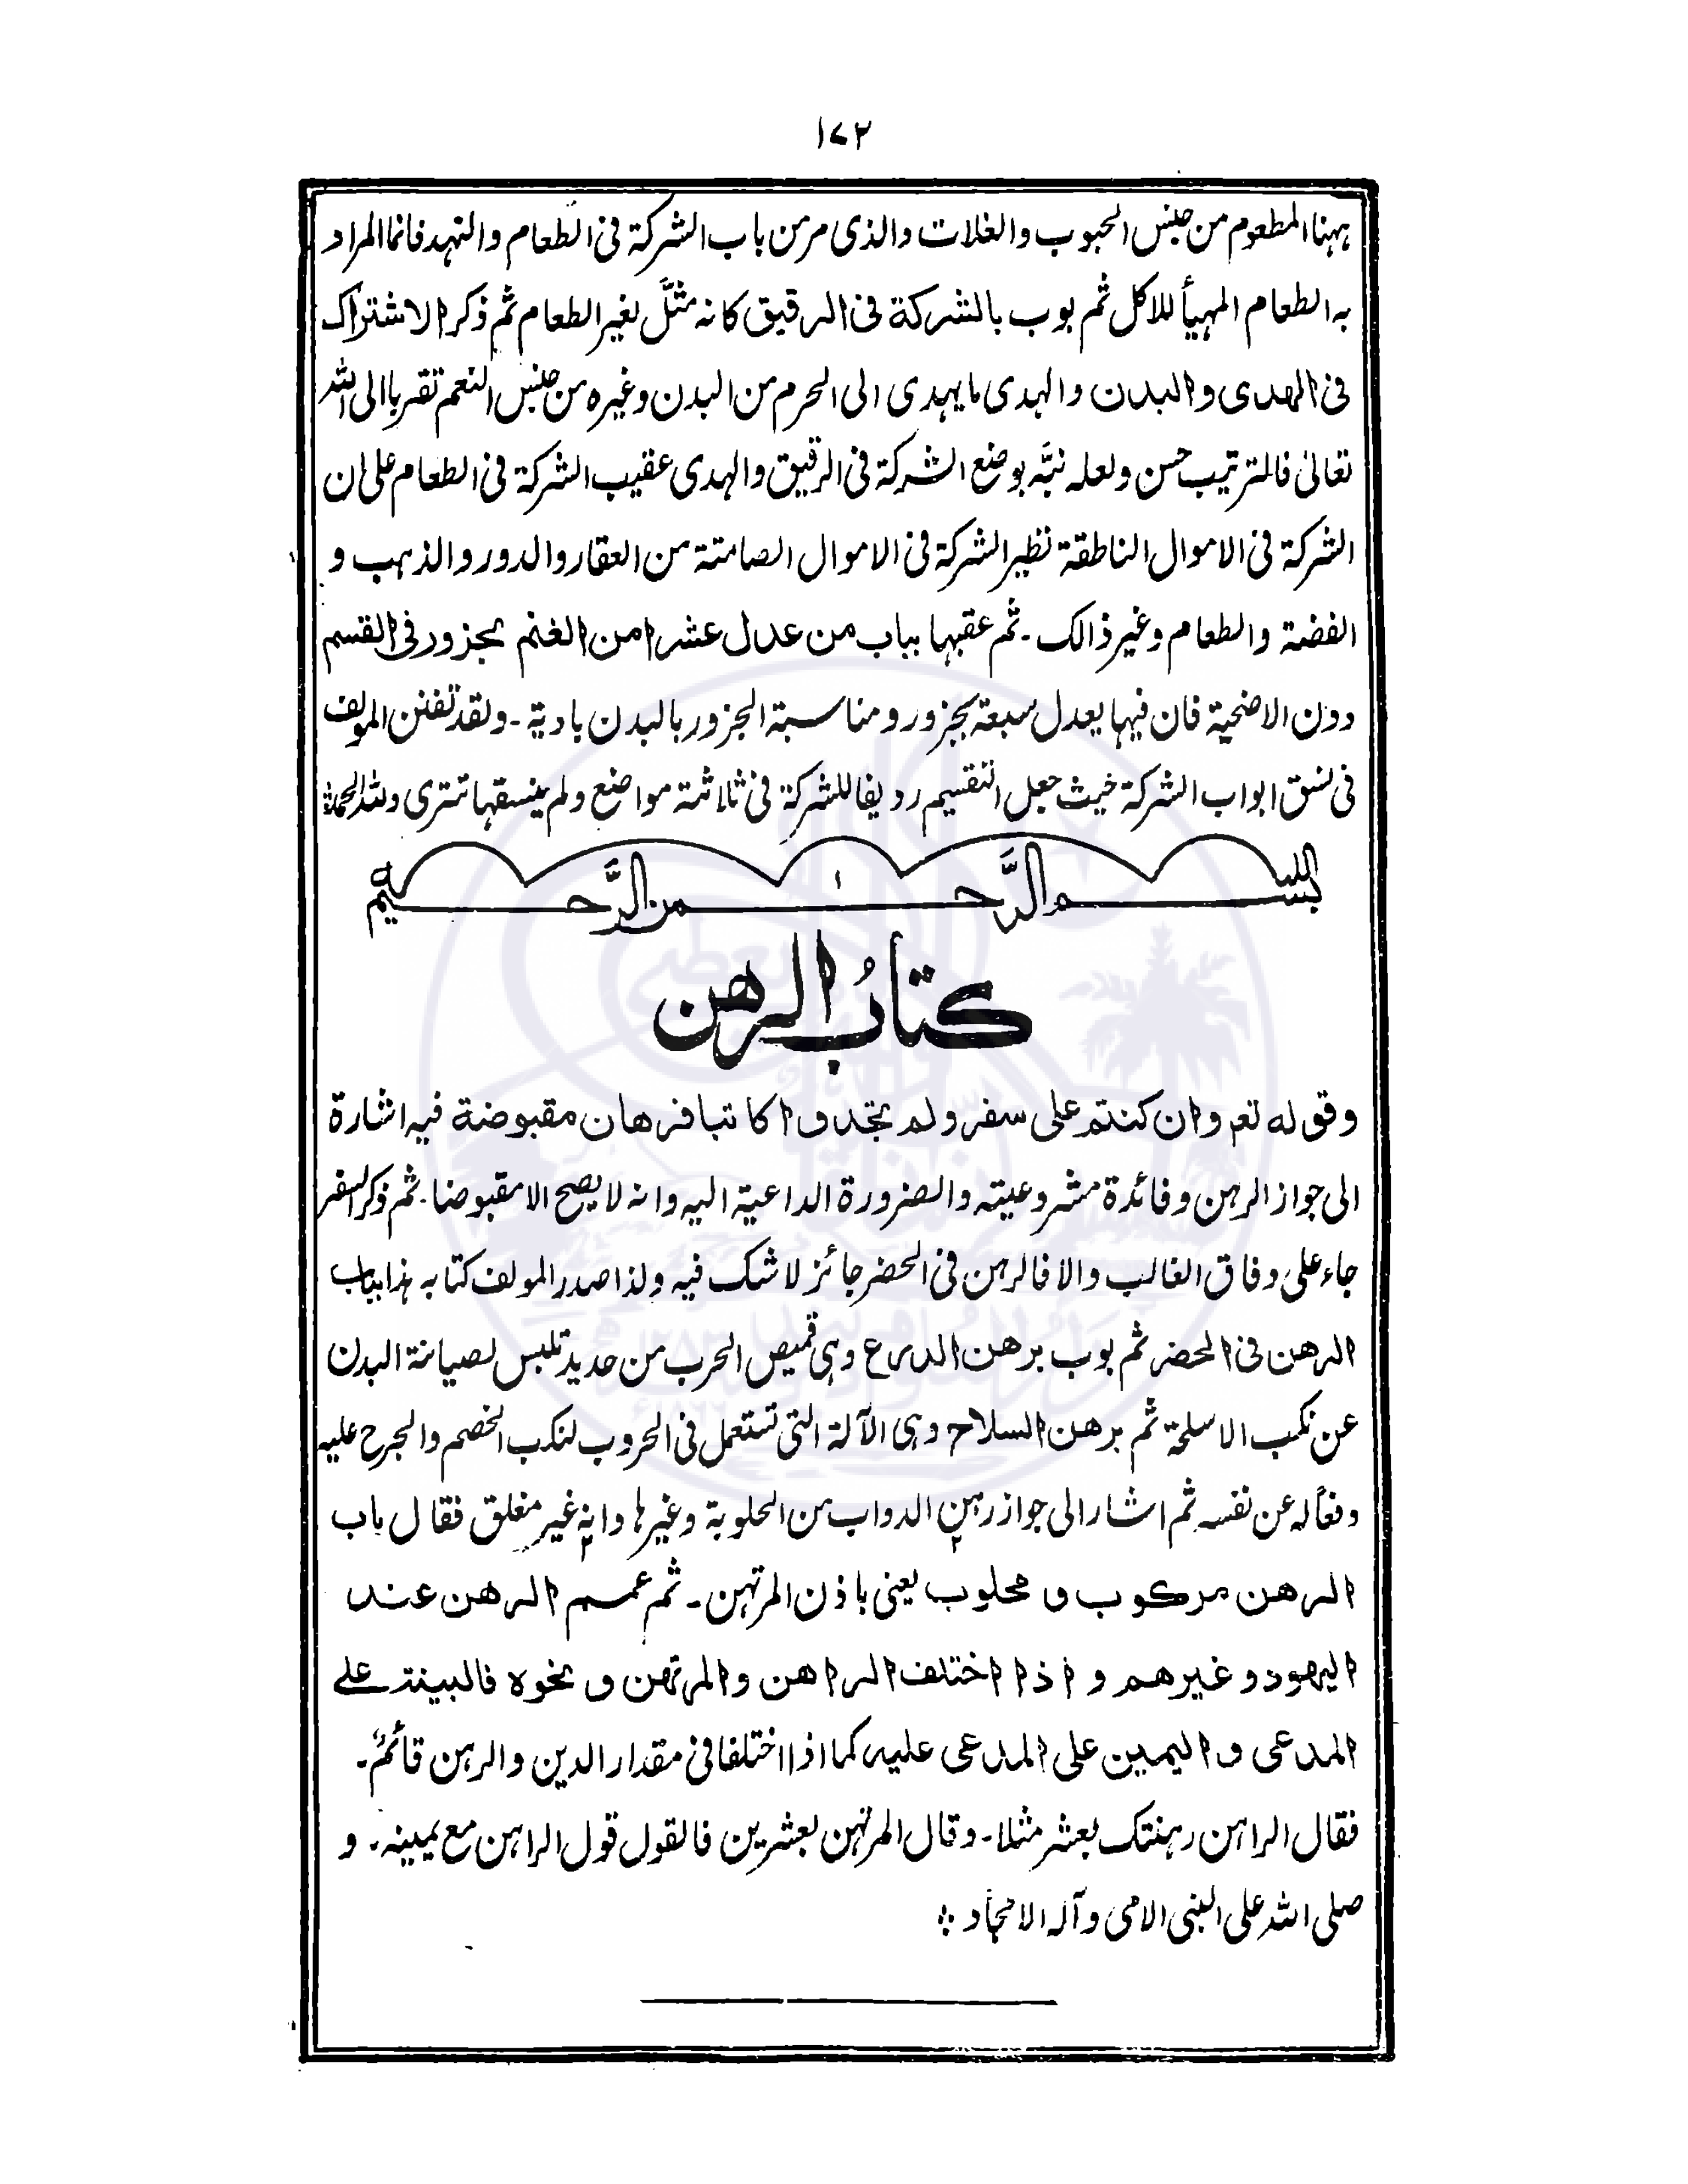 ١٧٢
ههنا المطعوم من جنس الحبوب والغلات والذى مر من باب الشركة فى الطعام والنهد فانما المراد
به الطعام المهيأ للاكل ثم بوب بالشركة فى الرقيق كانه مثّل لغير الطعام ثم ذكر الاشتراك
فى الهدى والبدن والهدى ما يهدى الى الحرم من البدن وغيره من جنس النعم تقربا الى الله
تعالىٰ فالترتيب حسن ولعله نبَّه بوضع الشركة فى الرقيق والهدى عقيب الشركة فى الطعام على ان
الشركة فى الاموال الناطقة نظير الشركة فى الاموال الصامتة من العقار والدور والذهب و
الفضة والطعام وغير ذالك ۔ ثم عقبها بباب من عدل عشرا من الغنم بجزور فى القسم
دون الاضحية فان فيها يعدل سبعة بجزور ومناسبة الجزور بالبدن بادية ۔ ولقد تفنن المولف
فى نسق ابواب الشركة حيث جعل التقسيم رديفا للشركة فى ثلاثة مواضع ولم ينسقها تترى ولله الحمد
بسم الله الرَّحمن الرَّحيم
كتابُ الرهن
وقوله تعم وان كنتم على سفر ولم تجدوا كاتبا فرهان مقبوضة فيه اشارة
الى جواز الرهن وفائدة مشروعيته والضرورة الداعية اليه وانه لا يصح الا مقبوضا ۔ ثم ذكر السفر
جاء على وفاق الغالب والا فالرهن فى الحضر جائز لا شك فيه ولذا صدر المولف كتابه هذا بباب
الرهن فى الحضر ثم بوب برهن الدرع وهى قميص الحرب من حديد تلبس لصيانة البدن
عن نكب الاسلحة ثم برهن السلاح وهى الآلة التى تستعمل فى الحروب لنكب الخصم والجرح عليه
دفعاً له عن نفسه ثم اشار الى جواز رهن الدواب من الحلوبة وغيرها وانه غير مغلق فقال باب
الرهن مركوب و محلوب يعنى باذن المرتهن ۔ ثم عمم الرهن عند
اليهود وغيرهم و اذا اختلف الراهن والمرتهن و نحوه فالبينة على
المدعى و اليمين على المدعى عليه كما اذا اختلفا فى مقدار الدين والرهن قائمٌ ۔
فقال الراهن رهنتك بعشر مثلا ۔ وقال المرتهن بعشرين فالقول قول الراهن مع يمينه ۔ و
صلى الله على النبى الامى وآله الامجاد ؞